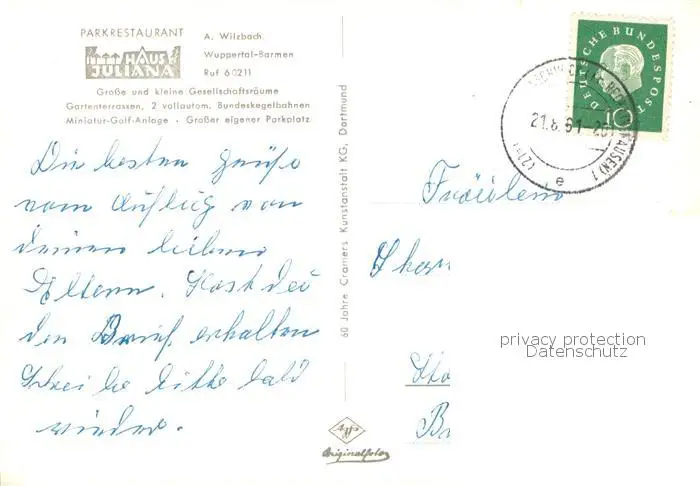 PARKRESTAURANT
HAUS
JULIANA
A. Wilzbach
Wuppertal-Barmen
Ruf 6 02 11
Große und kleine Gesellschaftsräume
Gartenterrassen, 2 vollautom. Bundeskegelbahnen
Miniatur-Golf-Anlage • Großer eigener Parkplatz
Die besten Grüße
vom Ausflug von
deinen lieben
Eltern. Hast du
den Brief erhalten
Schreibe bitte bald
wieder.
60 Jahre Cramers Kunstanstalt KG, Dortmund
Agfa
Originalfoto
DEUTSCHE BUNDESPOST
10
21.8.61
e
Fräulein
privacy protection
Datenschutz